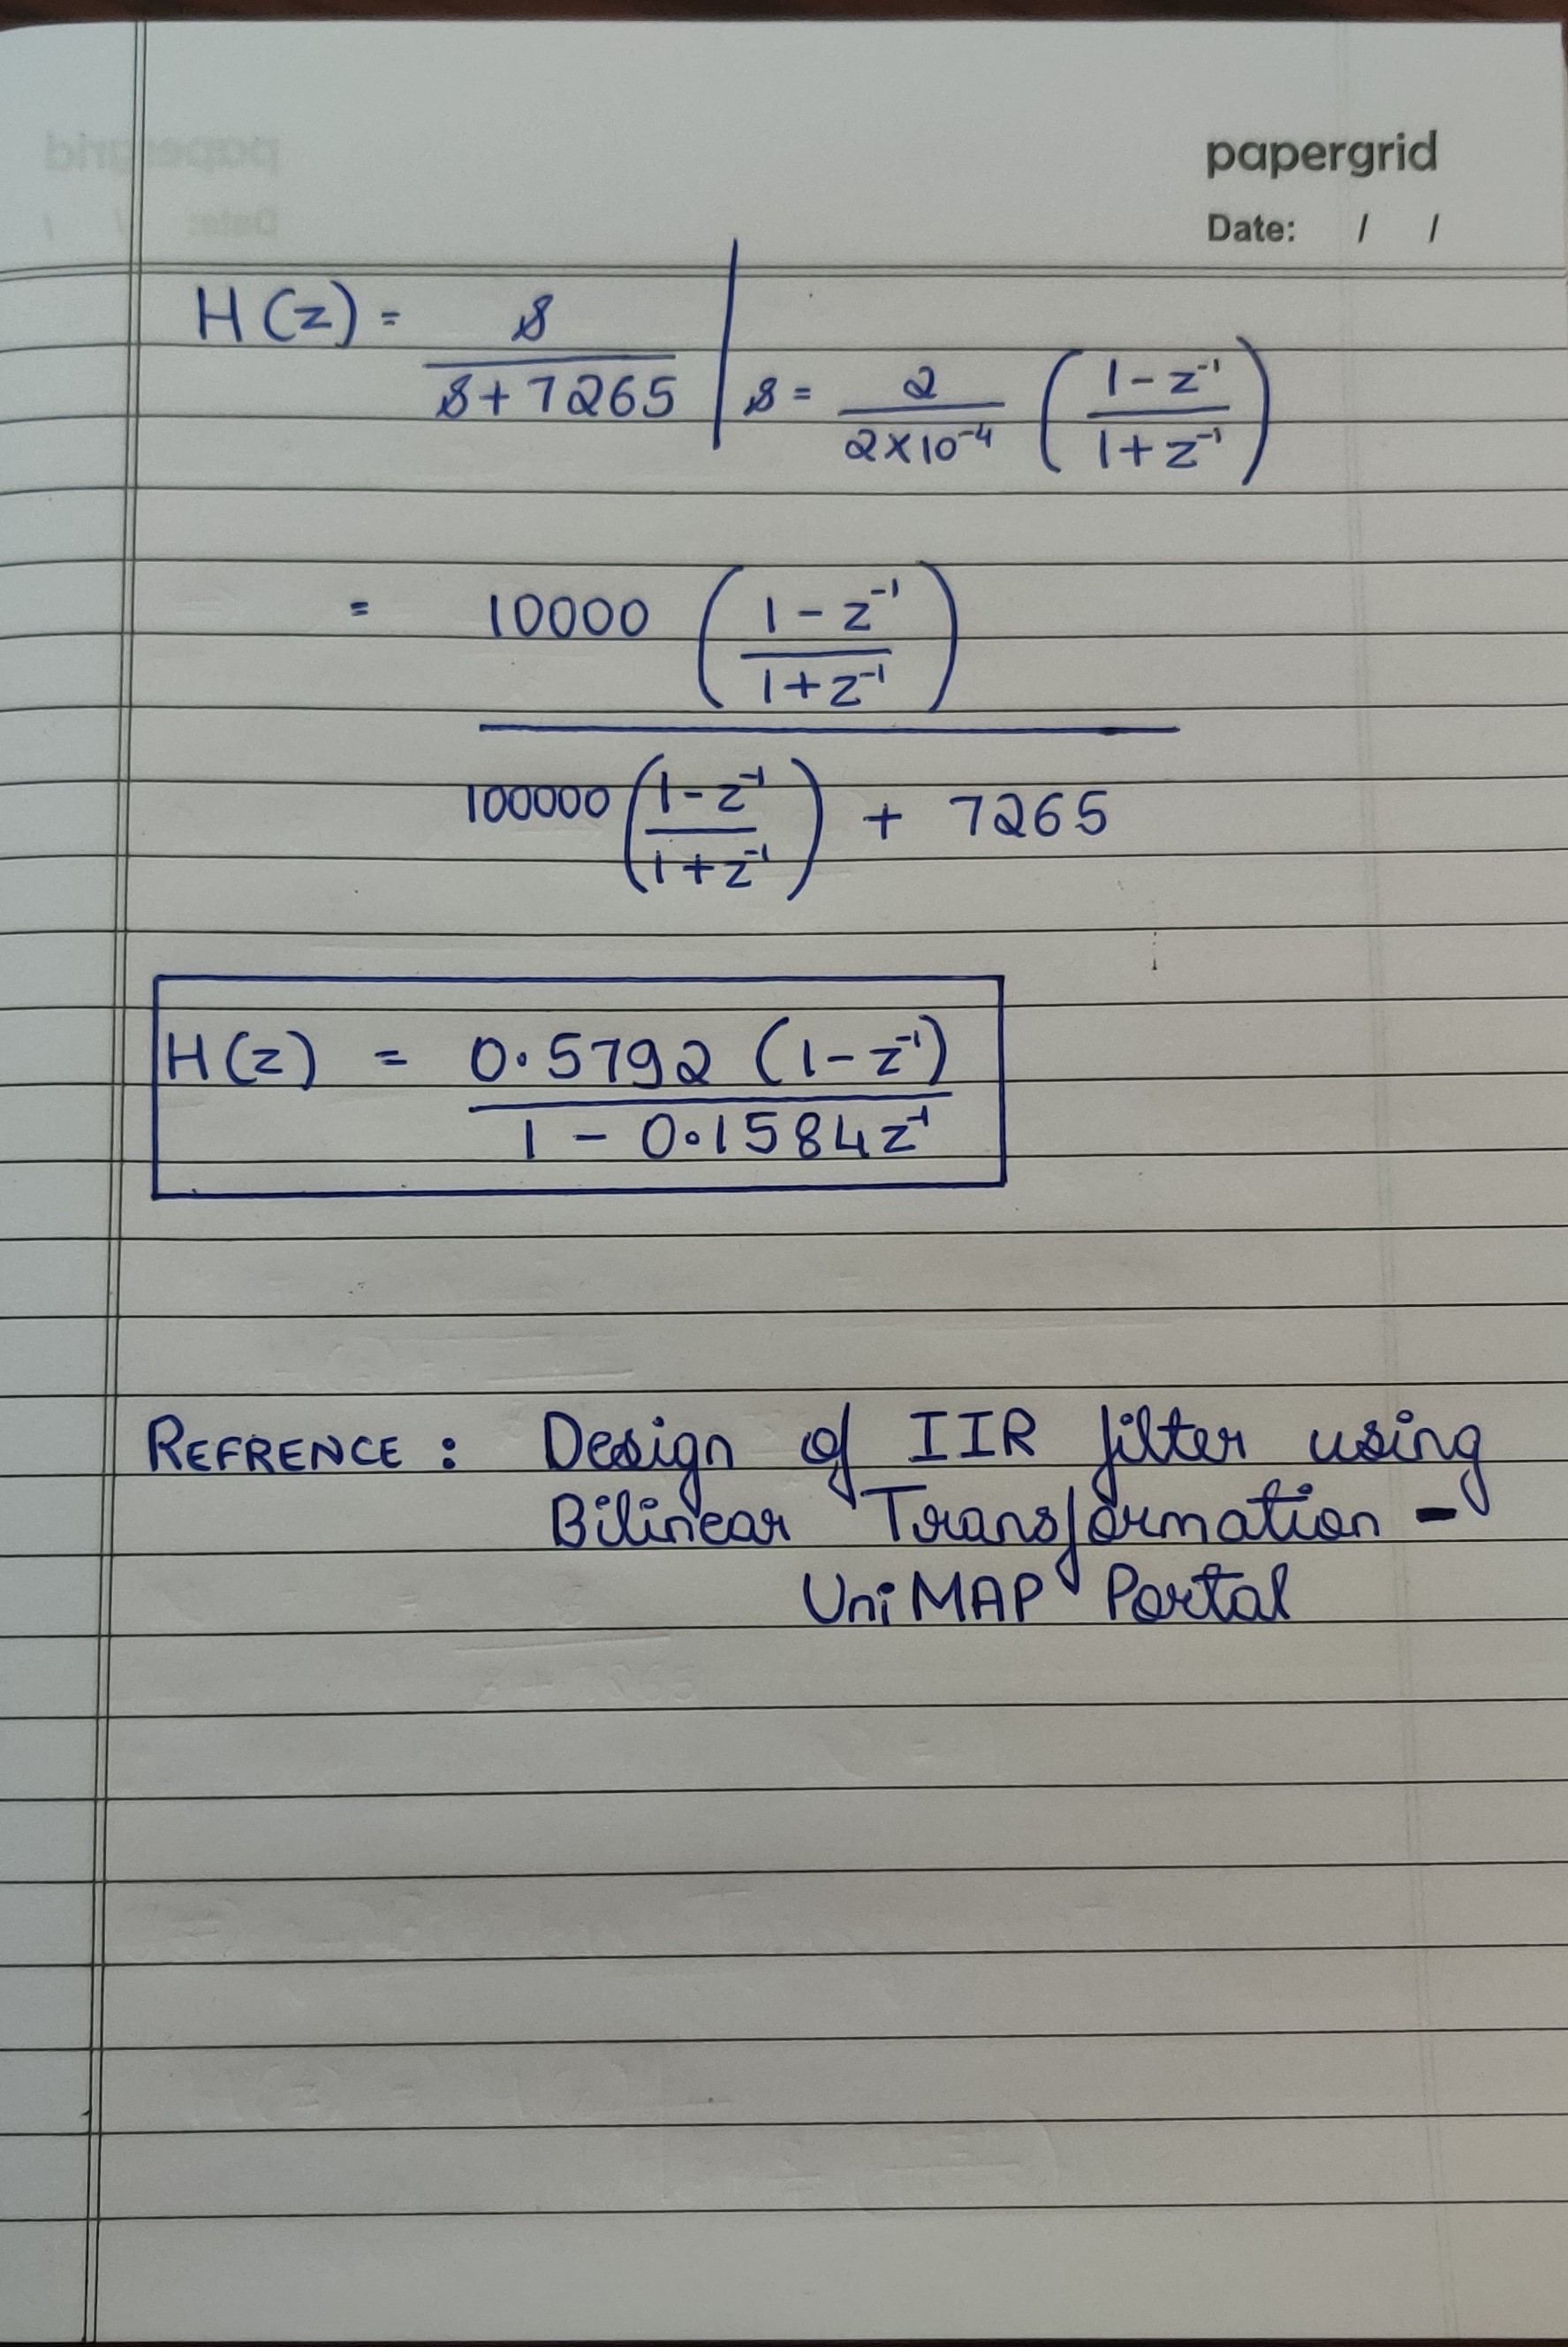 papergrid
Date: / /
H(z) = s / (s + 7265) | s = 2 / (2×10⁻⁴) ((1 - z⁻¹) / (1 + z⁻¹))
= 10000 ((1 - z⁻¹) / (1 + z⁻¹))
100000 ((1 - z⁻¹) / (1 + z⁻¹)) + 7265
H(z) = 0.5792 (1 - z⁻¹) / (1 - 0.1584z⁻¹)
REFRENCE : Design of IIR filter using
Bilinear Transformation -
UniMAP Portal